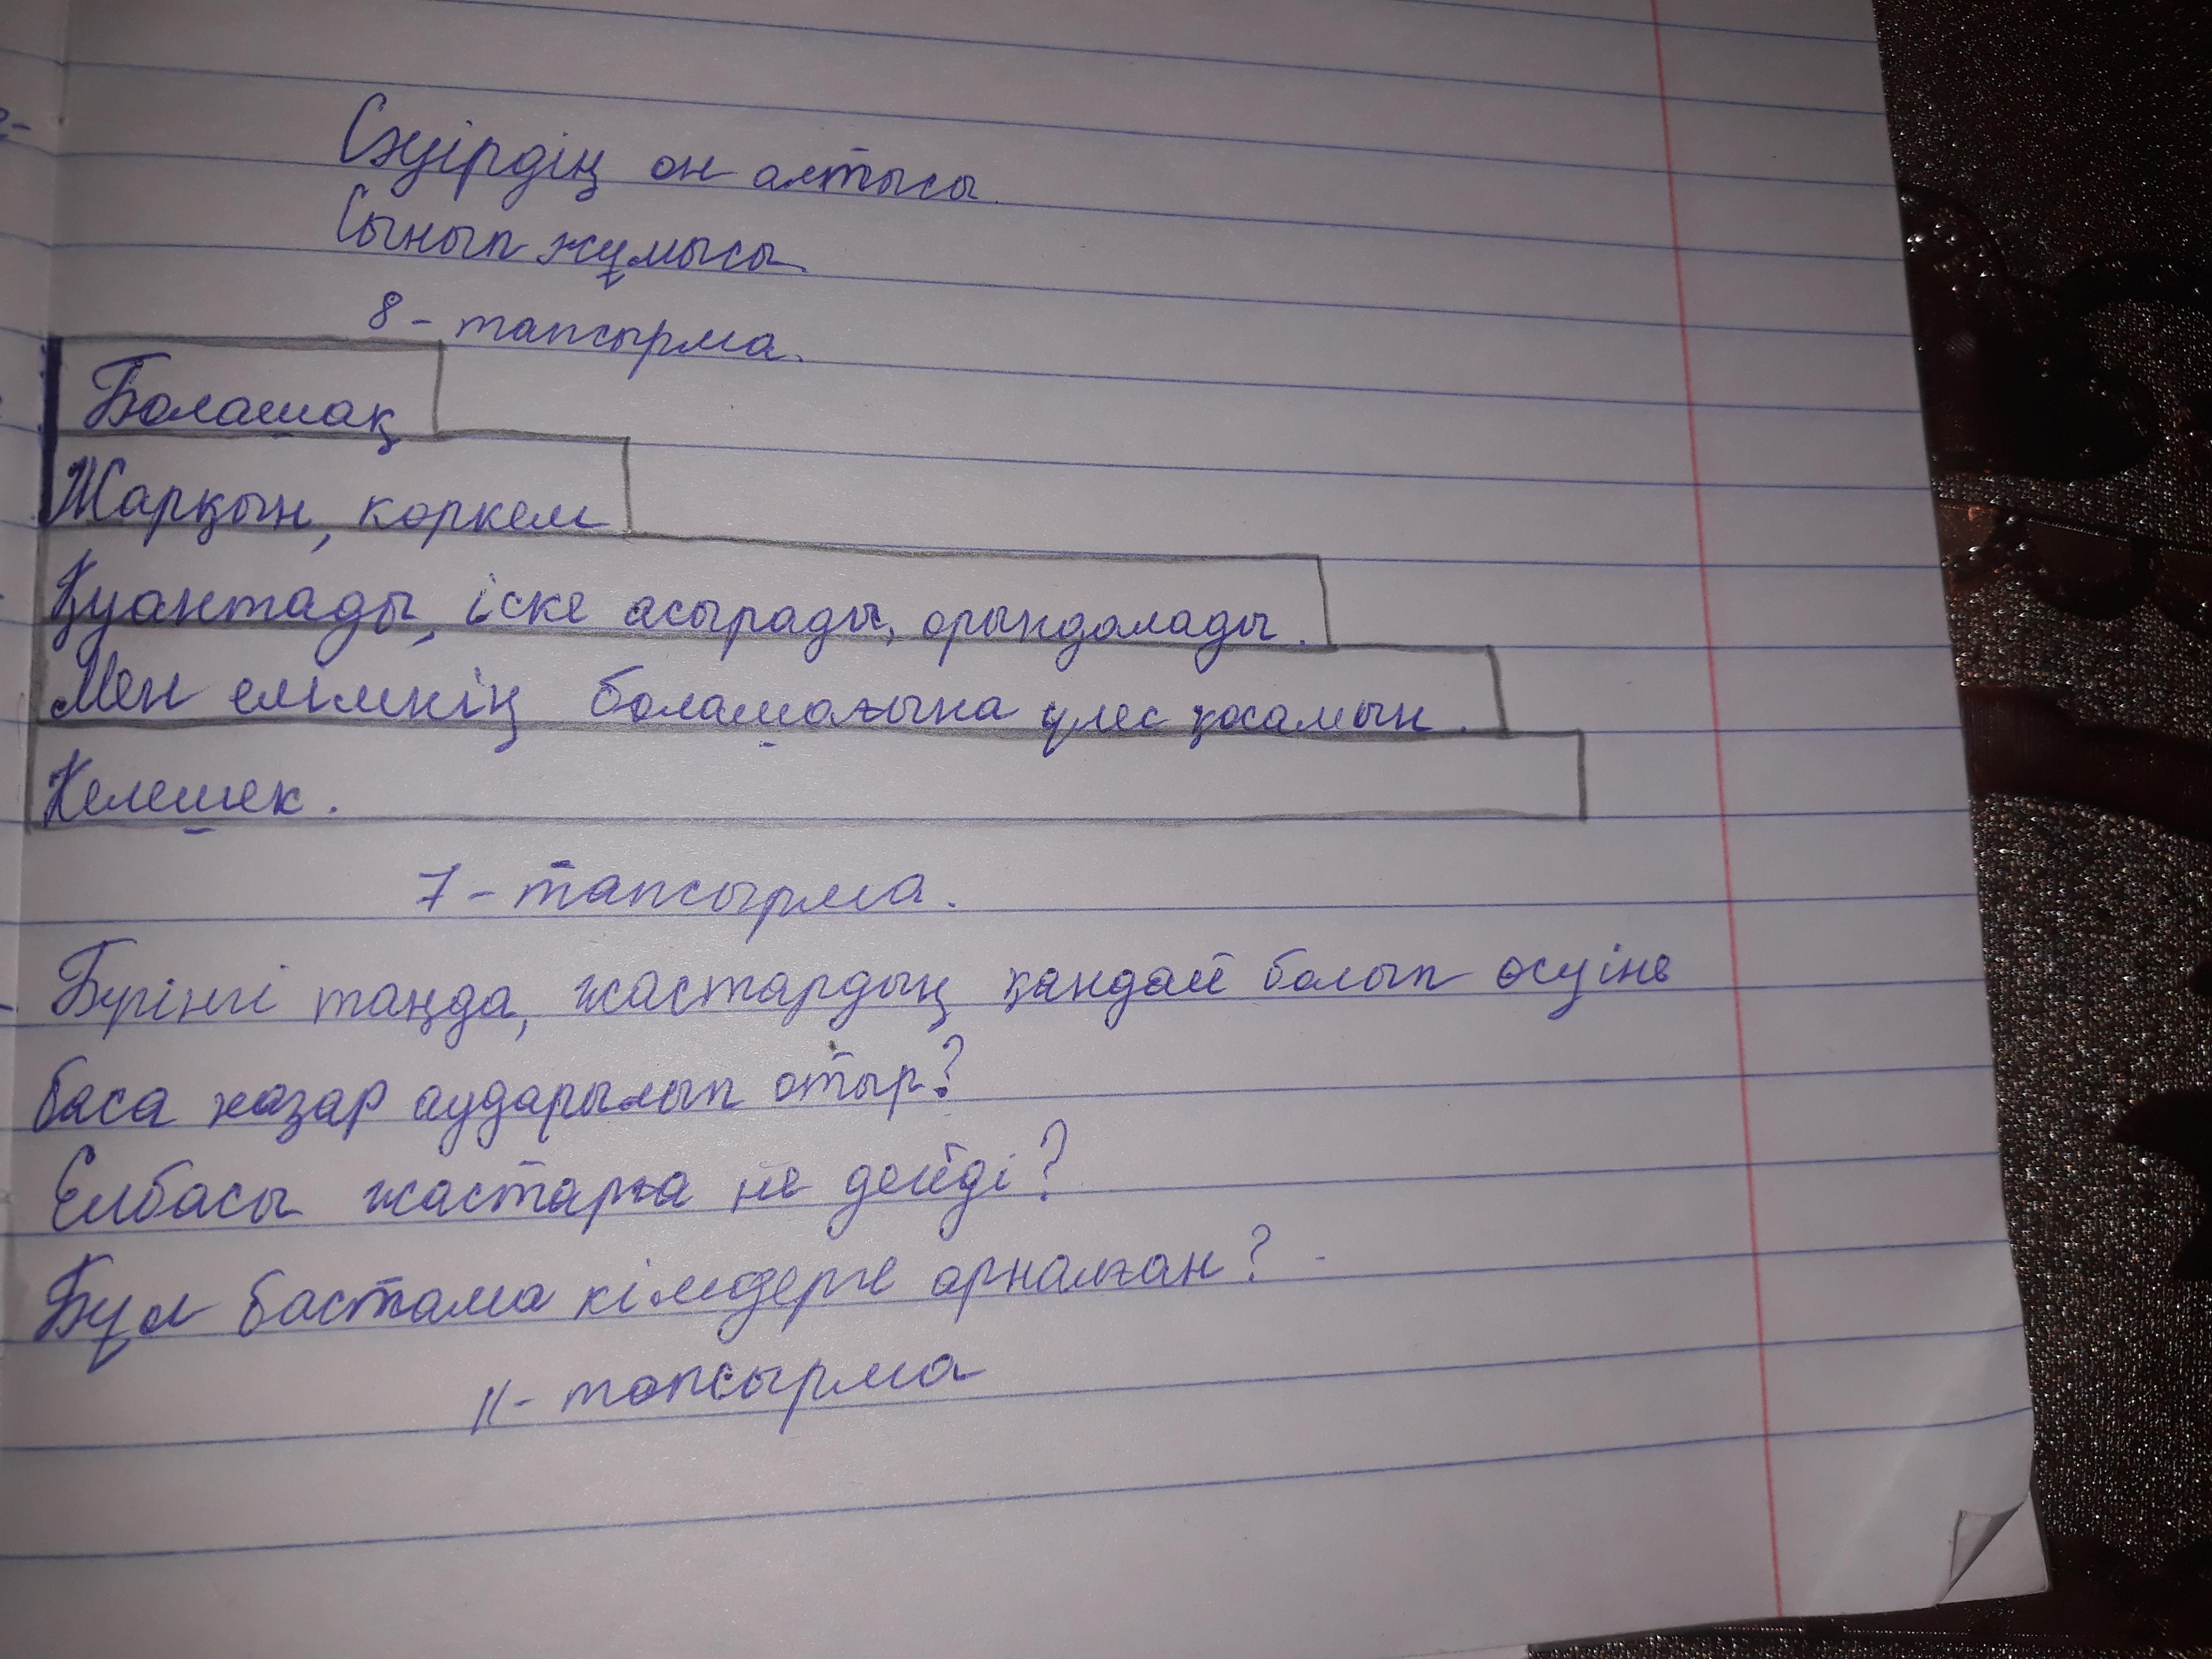 Сәуірдің он алтысы.
Сынып жұмысы.
8-тапсырма.
Болашақ
Жарқын, көркем
Қуантады, іске асырады, орындалады.
Мен елімнің болашағына үлес қосамын.
Келешек.
7-тапсырма.
Бүгінгі таңда, жастардың қандай болып өсуіне
баса назар аударылып отыр?
Елбасы жастарға не дейді?
Бұл бастама кімдерге арналған?
11-тапсырма